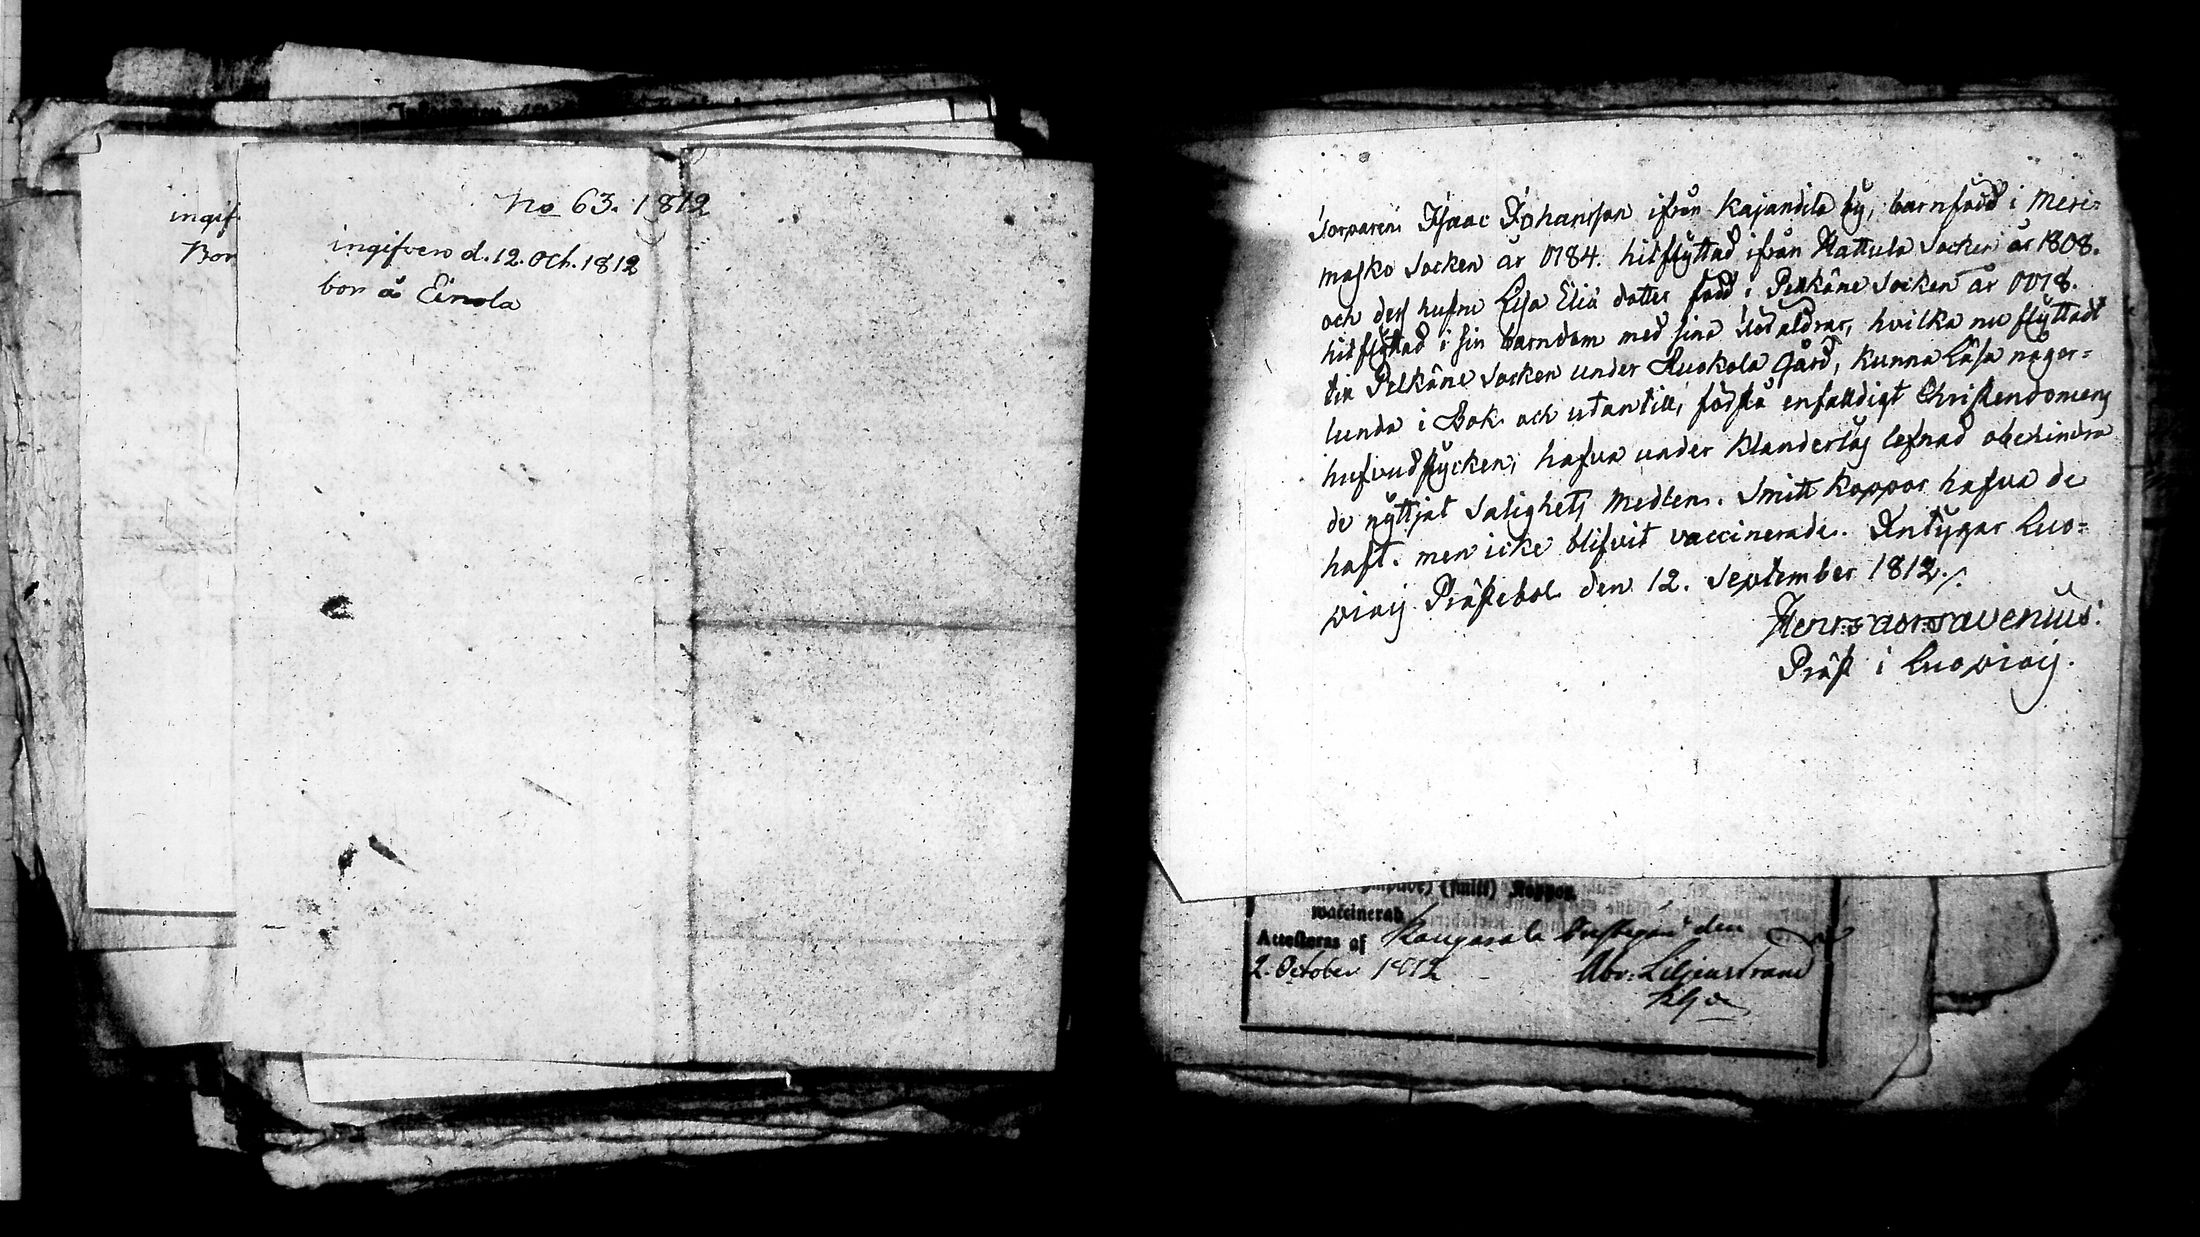 No 63. 1812
ingifven d. 12. Oct. 1812
bor å Einola
ingif
Bor
Torparen Isaac Johansson ifrån Kajandila by, barnfödd i Meri-
masko Socken år 1784. hitflyttad ifrån Hattula Socken år 1808.
och dess hustru Lisa Elia dotter född i Pelkäne Socken år
hitflyttad i sin barndom med sina föräldrar, hvilka nu flyttadt
till Pelkäne Socken under Huokola Gård, kunna Läsa någor-
lunda i Bok och utantill, förstå enfaldigt Christendomens
hufvudstycken, hafva under klanderlös lefnad obehindra
de nyttjat Salighets Medlen. Smitt koppor hafva de
haft. men icke blifvit vaccinerade. Intygar Luo-
piois Prästebol den 12. September 1812./.
Präst i Luopiois.
(smitt) Koppor.
waccinerad
Attesteras af Kangasala Prestegård den
2. October 1812 Abr: Liljenstrand